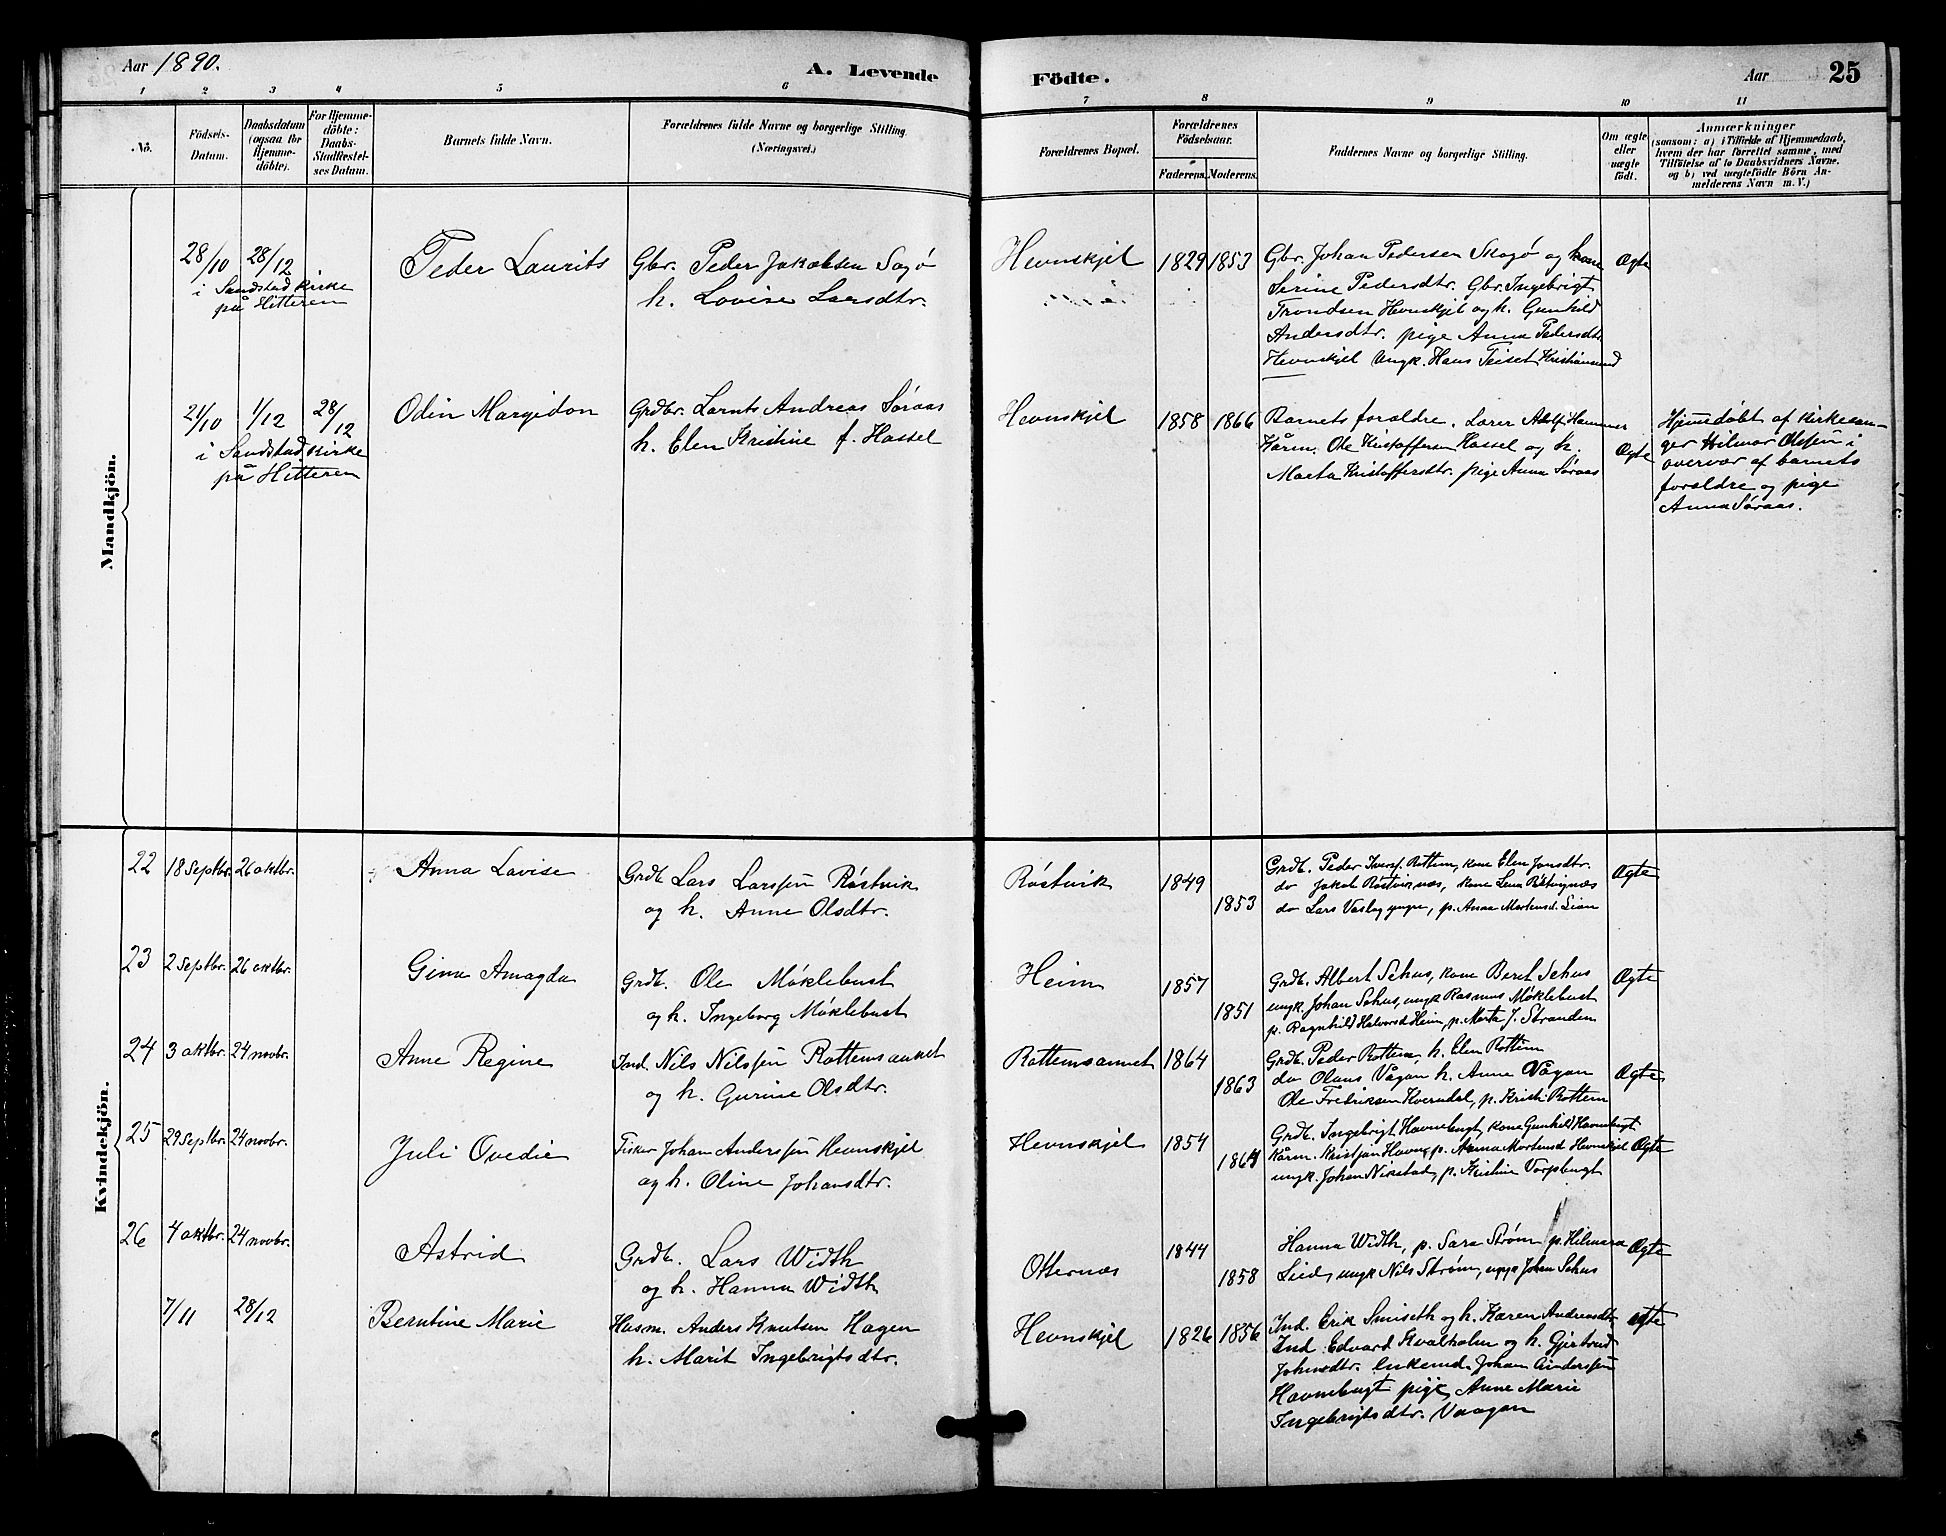 Aar 1890.
A. Levende
Födte.
Aar
25
1 2 3 4 5 6 7 8 9 10 11
No.
Födsels-
Datum.
Daabsdatum
(ogsaa for
Hjemme-
döbte).
For Hjemme-
döbte:
Daabs-
Stadfæstel-
ses Datum.
Barnets fulde Navn.
Forældrenes fulde Navne og borgerlige Stilling.
(Næringsvei.)
Forældrenes Bopæl.
Forældrenes
Födselsaar.
Faderens.
Moderens.
Faddernes Navne og borgerlige Stilling.
Om ægte
eller
uægte
födt.
Anmærkninger
(saasom: a) i Tilfælde af Hjemmedaab,
hvem der har forrettet samme, med
Tilföielse af to Daabsvidners Navne.
og b) ved uægtefödte Börn An-
melderens Navn m. V.)
Mandkjön.
28/10 28/12
i Sandstad kirke
på Hitteren
Peder Laurits
Gbr. Peder Jakobsen Sagø
h. Lovise Larsdtr.
Hevnskjel
1829 1853
Gbr. Johan Pedersen Skogø og kone
Serine Pedersdtr. Gbr. Ingebrigt
Trondsen Hevnskjel og h. Gunhild
Andersdtr. pige Anna Pedersdtr
Hevnskjel Ungk. Hans Teiset Kristiansund
Ægte
21/10 1/12 28/12
i Sandstad kirke
på Hitteren
Odin Margidon
Grdbr. Lornts Andreas Søraas
h. Elen Kristine f. Hassel
Hevnskjel
1858 1866
Barnets forældre. Lærer Adolf Hammer
Kårm. Ole Kristoffersen Hassel og h.
Marta Kristoffersdtr. pige Anna Søraas
Ægte
Hjemdøbt af kirkesan-
ger Hilmar Olssen i
overvær af barnets
forældre og pige
Anna Søraas.
Kvindekjön.
22 18 Septbr. 26 oktbr.
Anna Lovise
Grdb. Lars Larssen Røstvik
og h. Anne Olsdtr.
Røstvik
1849
1853
Grdb. Peder Iversf. Rottem, kone Elen Jonsdtr.
do Jakob Røstviknæs, kone Lena Røstvignæs
do Lars Vaslag yngre, p. Anna Mortensd. Lian
Ægte
23 2 Septbr. 26 oktbr.
Gina Amagda
Grdb. Ole Møklebust
og h. Ingeborg Møklebust
Heim
1857
1851
Grdb. Albert Sehus, kone Beret Sehus
ungk. Johan Sehus, ungk Rasmus Møklebust
p. Ragnhild Halvorsd Heim, p. Marta J. Stranden
Ægte
24 3 oktbr. 24 novbr.
Anne Regine
Ind. Nils Nilssen Rottemsannet
og h. Gurine Olsdtr.
Rottemsannet
1864
1863
Grdb. Peder Rottem, h. Elen Rottem
do Olaus Vågan h. Anne Vågan
Ole Fredriksen Hverndal, p. Kristi Rottem
Ægte
25 29 Septbr. 24 novbr.
Juli Ovedie
Fisker Johan Anderssen Hevnskjel
og h. Oline Johansdtr.
Hevnskjel
1854
1864
Grdb. Ingebrigt Havnebugt, kone Gunhild Havnebugt
Kårm. Kristjan Havng, p. Anna Mortensd Hevnskjel
ungk. Johan Nikstad, p. Kristine Vorpbugt
Ægte
26 4 oktbr. 24 novbr.
Astrid
Grdb. Lars Width
og h. Hanna Width
Otternæs
1844
1858
Hanna Width, p. Sara Strøm p. Hilmara
Lied, ungk Nils Strøm, ungk Johan Sehus
Ægte
7/11 28/12
Berntine Marie
Husm. Anders Knutsen Hagen
h. Marit Ingebrigtsdtr.
Hevnskjel
1826 1856
Ind. Erik Smiseth og h. Karen Andreasdtr.
Ind. Edvard Kvalholm og h. Gjertrud
Johnsdtr. enkemd. Johan Anderssen
Havnebugt pige Anne Marie
Ingebrigtsdtr. Vaagan
ægte